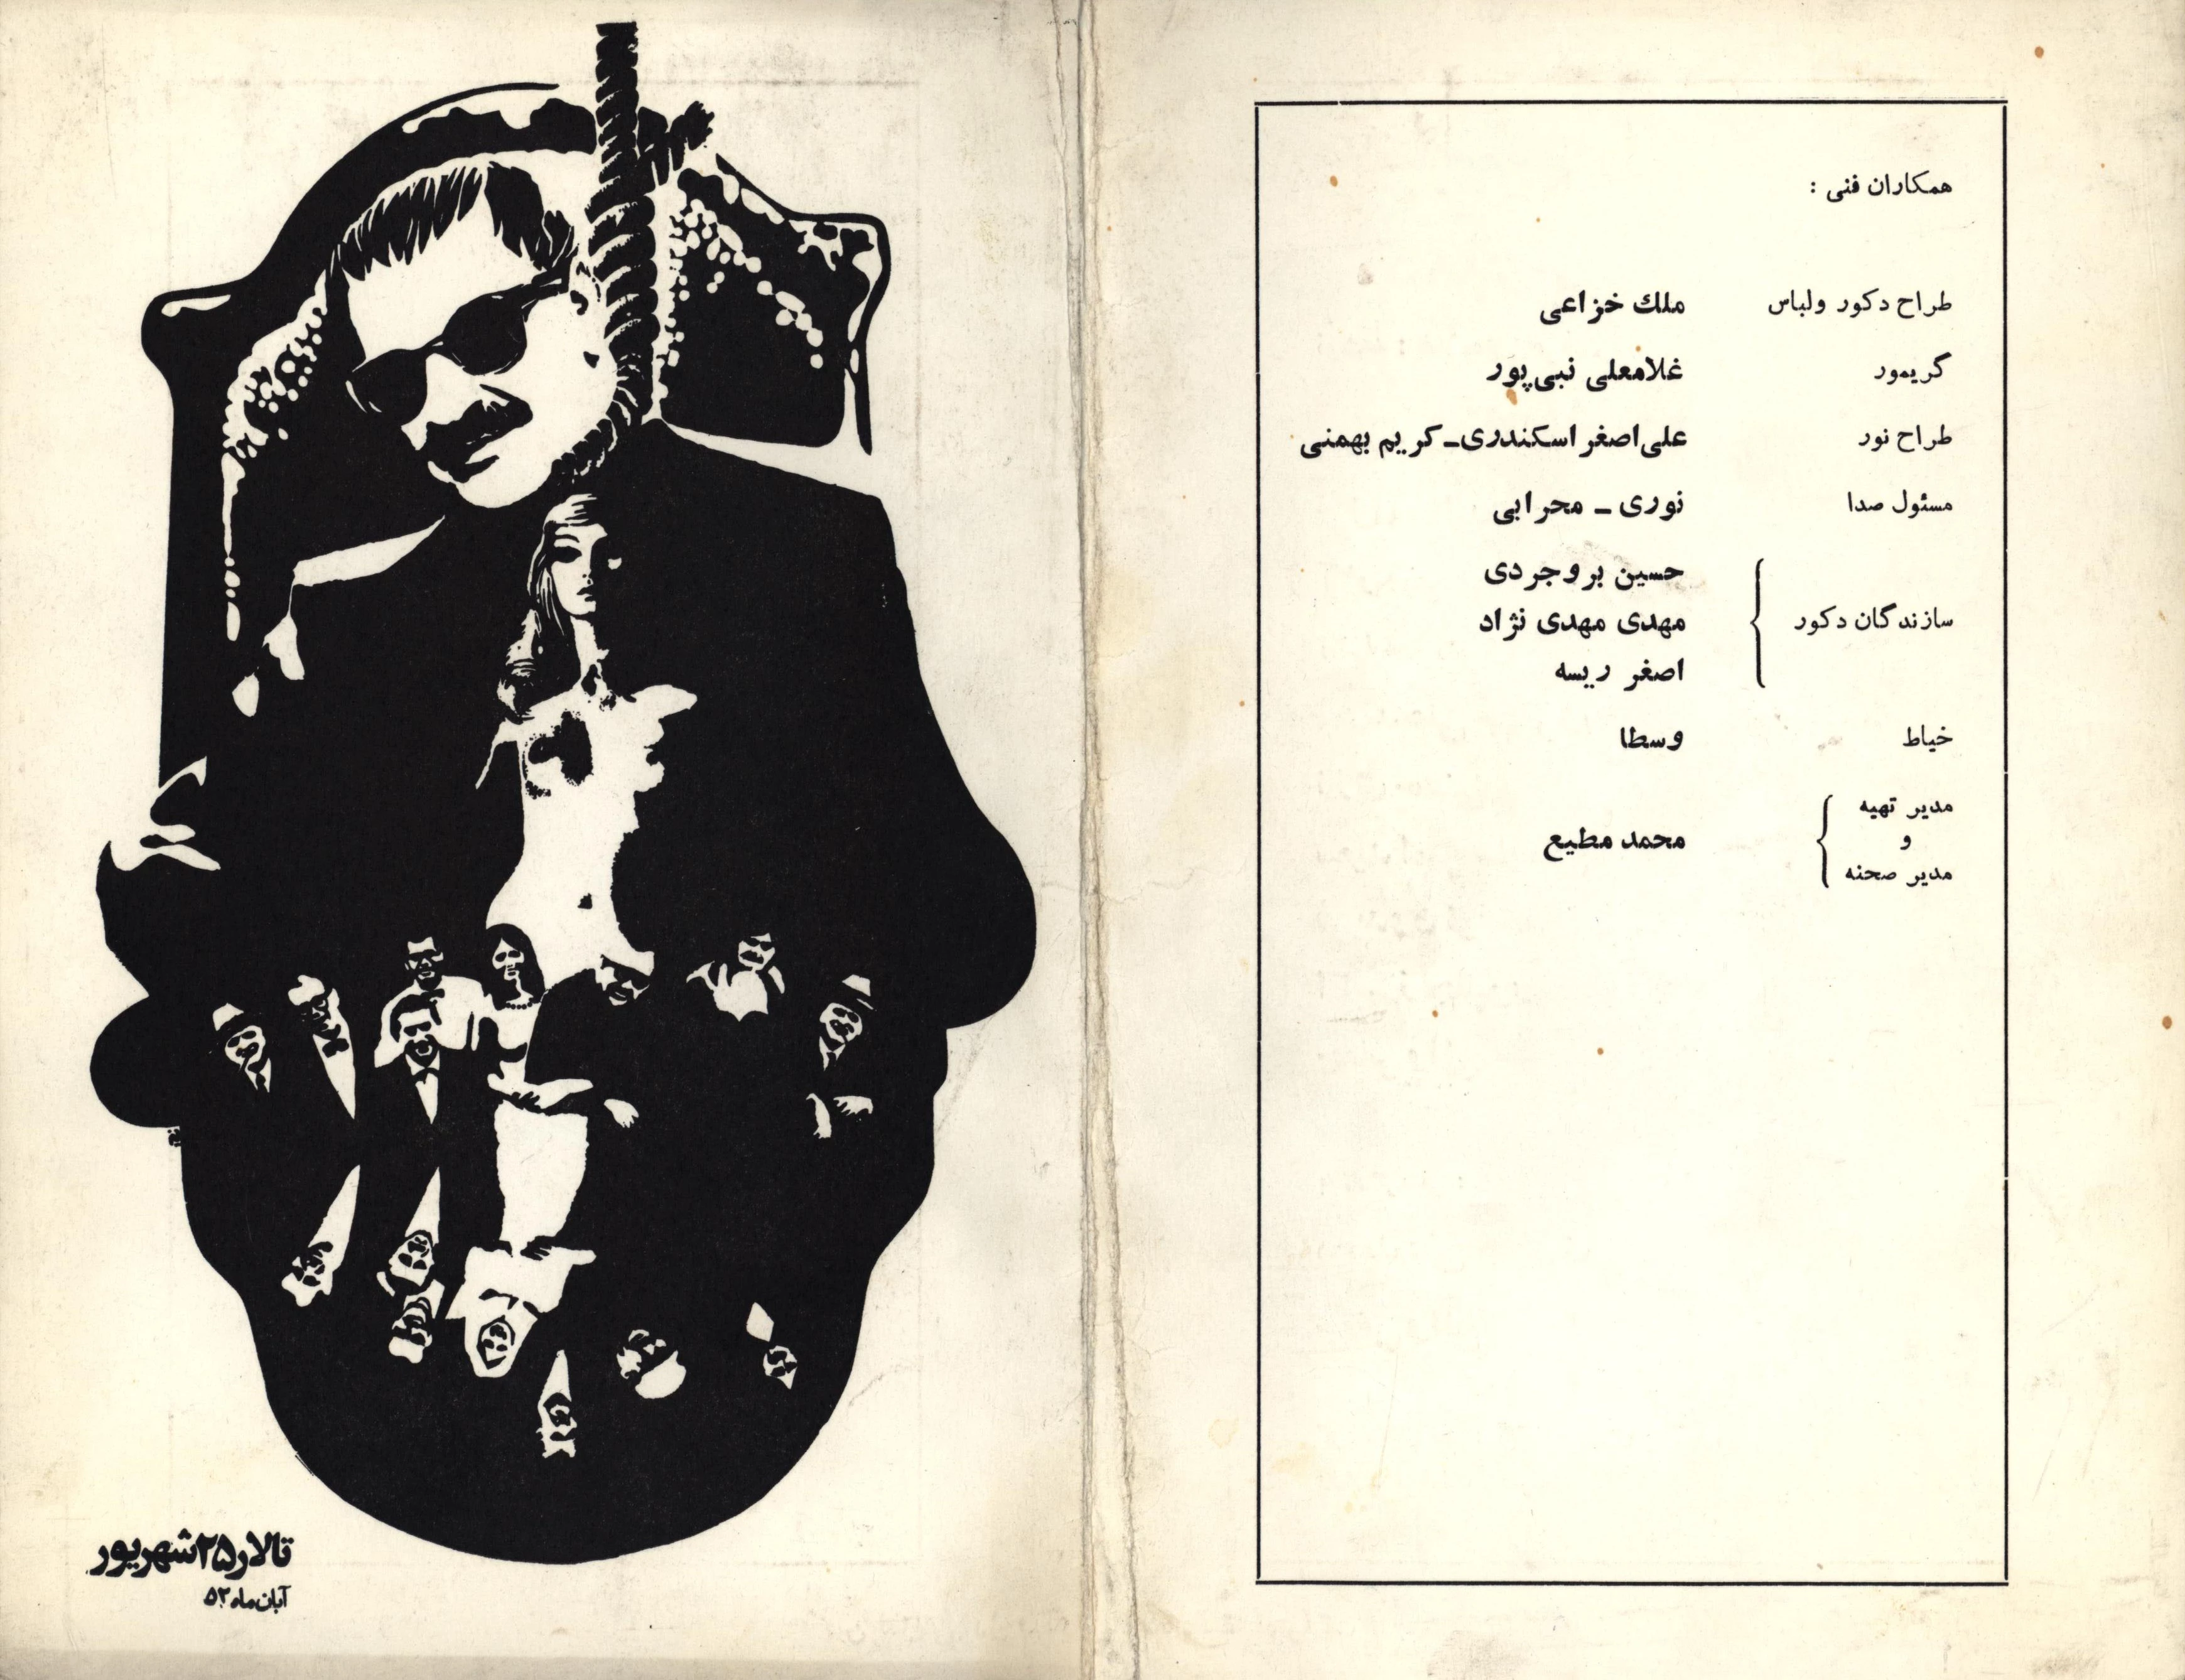 همکاران فنی :
طراح دکور ولباس ملك خزاعی
گریمور غلامعلی نبی‌پور
طراح نور علی‌اصغر اسکندری ـ کریم بهمنی
مسئول صدا نوری ـ محرابی
حسین بروجردی
سازندگان دکور مهدی مهدی نژاد
اصغر ریسه
خیاط وسطا
مدیر تهیه
و محمد مطیع
مدیر صحنه
تالار ۲۵ شهریور
آبان‌ماه ۵۳